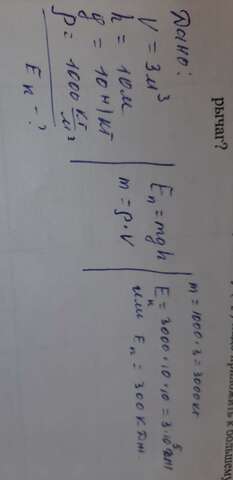 рычаг?
Дано:
V = 3м³
h = 10м
g = 10 н/кг
ρ = 1000 кг/м³
Eп - ?
Eп = mgh
m = ρ·V
m = 1000·3 = 3000 кг
Eп = 3000·10·10 = 3·10⁵ Дж
или Eп = 300 кДж.
к большему